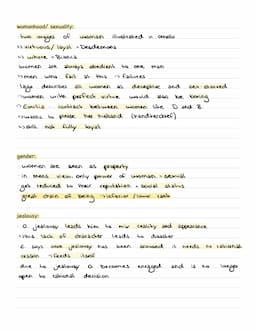 womanhood/ sexuality:
two images of women illustrated in othello
↳ virtuous/ loyal - Desdemona
↳ whore - Bianca
women are always obedient to one man
↳ men who fail at this → failures
Iago describes all women as deceptive and sex starved
↳ women with perfect virtue would also be boring
↳ Emilia contrast between women like D and B
↳ wants to please her husband (handkerchief)
↳ still not fully loyal
gender:
women are seen as property
in mens view only power of woman → sexual
get reduced to their reputation + social status
great chain of being → inferior / lower
jealousy:
O jealousy leads him to mix reality and appearance
↳ this lack of character leads to disaster
E says once jealousy has been aroused it needs no rational
reason → feeds itself
due to jealousy O becomes enraged and is no longer
open to rational decision